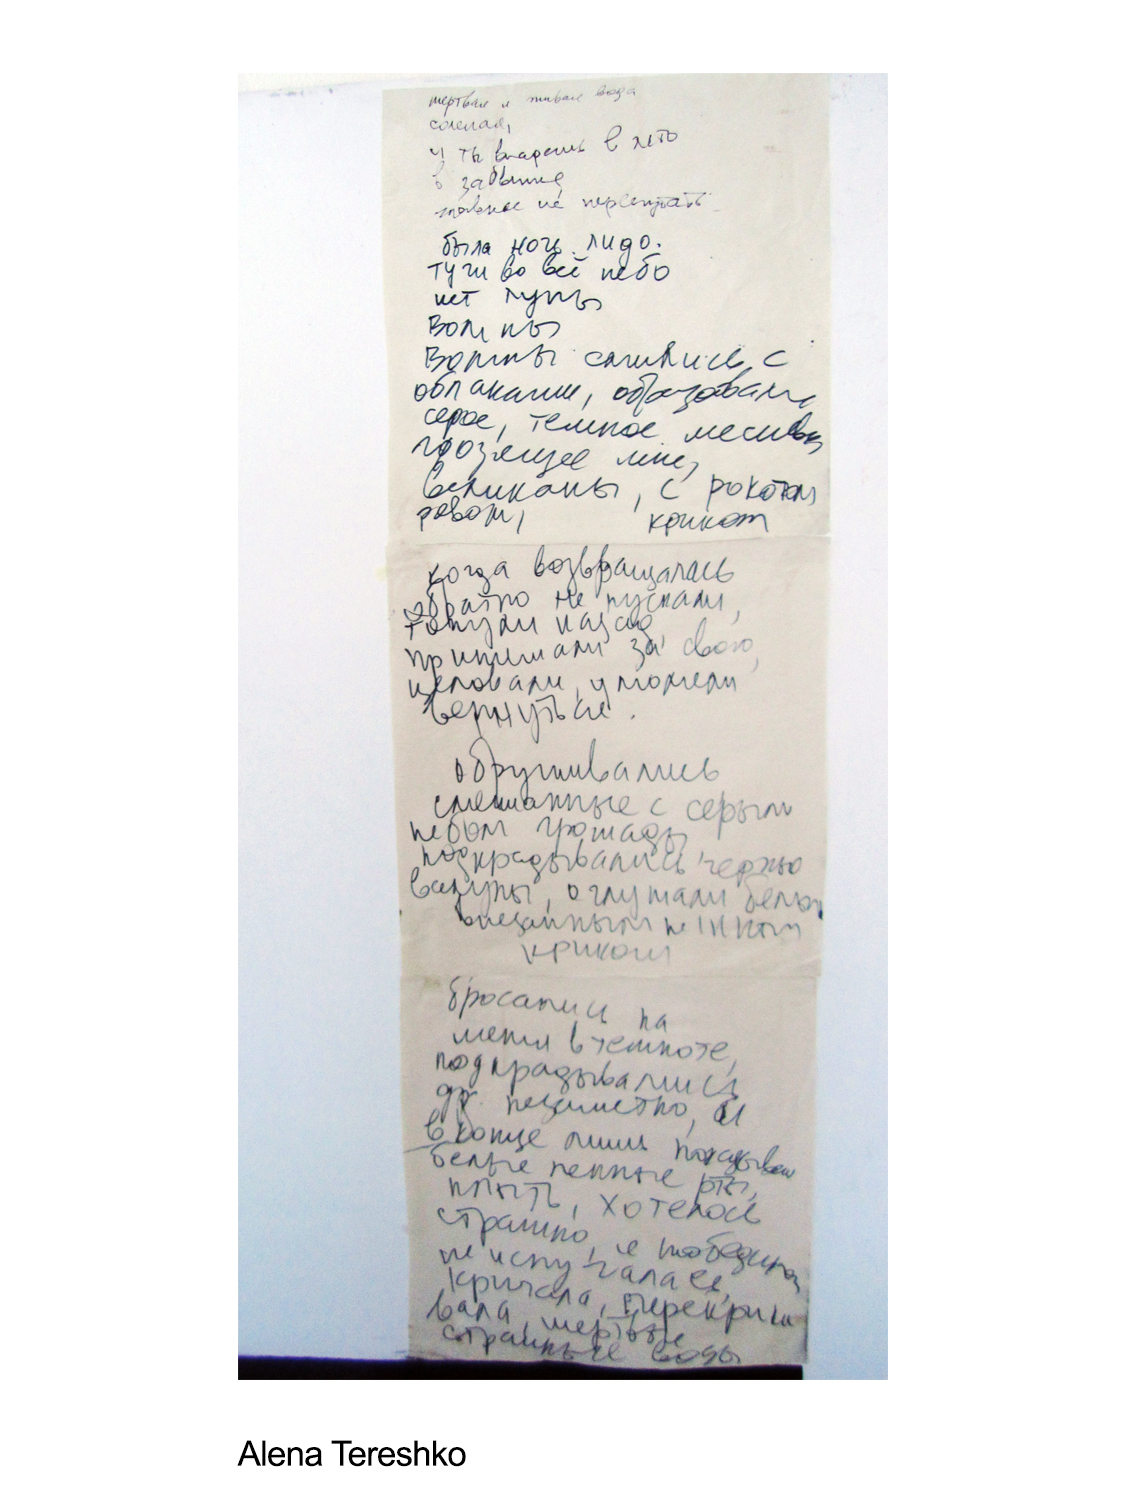 мертвая и живая вода
соленая,
и ты впадешь в лето
в забытье
главное не перепутать
была ночь. лидо.
тучи во всё небо
нет луны
волны
Волны слились с
облаками, образовали
серое, темное месиво
грозящее мне,
великаны, с рокотом
ревом, криком
когда возвращалась
обратно не пускали,
тянули назад
принимали за свою,
целовали, умоляли
вернуться.
обрушивались
смешанные с серым
небом громады
подкрадывались черные
валуны, оглушали белым
внезапным
криком
бросались на
меня в темноте,
подкрадывались
незаметно, и
в конце лишь показывали
белые пенные рты,
плыть, хотелось
страшно, я победила
не испугалась,
кричала, перекрики
вала мертвые
страшные воды
Alena Tereshko